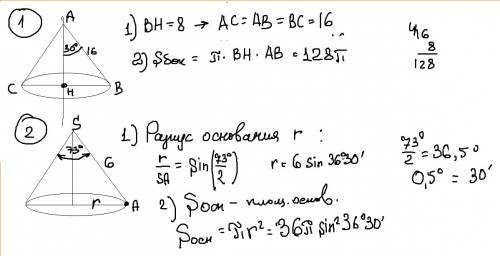 1
A
30°
16
C
H
B
1) BH = 8 → AC = AB = BC = 16
2) Sбок = π · BH · AB = 128π
4
16
8
128
2
S
73°
6
r
A
1) Радиус основания r :
r/SA = sin(73°/2) r = 6 sin 36°30'
73°/2 = 36,5°
0,5° = 30'
2) Sосн – площ. основ.
Sосн = πr² = 36π sin² 36°30'